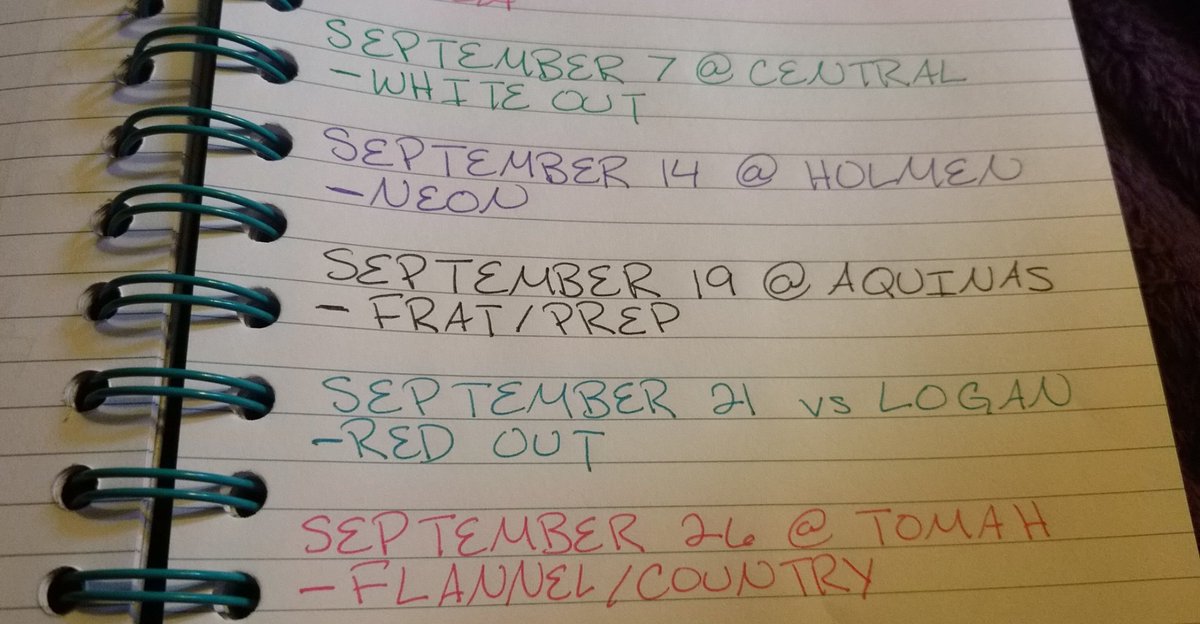 SEPTEMBER 7 @ CENTRAL
- WHITE OUT
SEPTEMBER 14 @ HOLMEN
- NEON
SEPTEMBER 19 @ AQUINAS
- FRAT/PREP
SEPTEMBER 21 vs LOGAN
- RED OUT
SEPTEMBER 26 @ TOMAH
- FLANNEL/COUNTRY